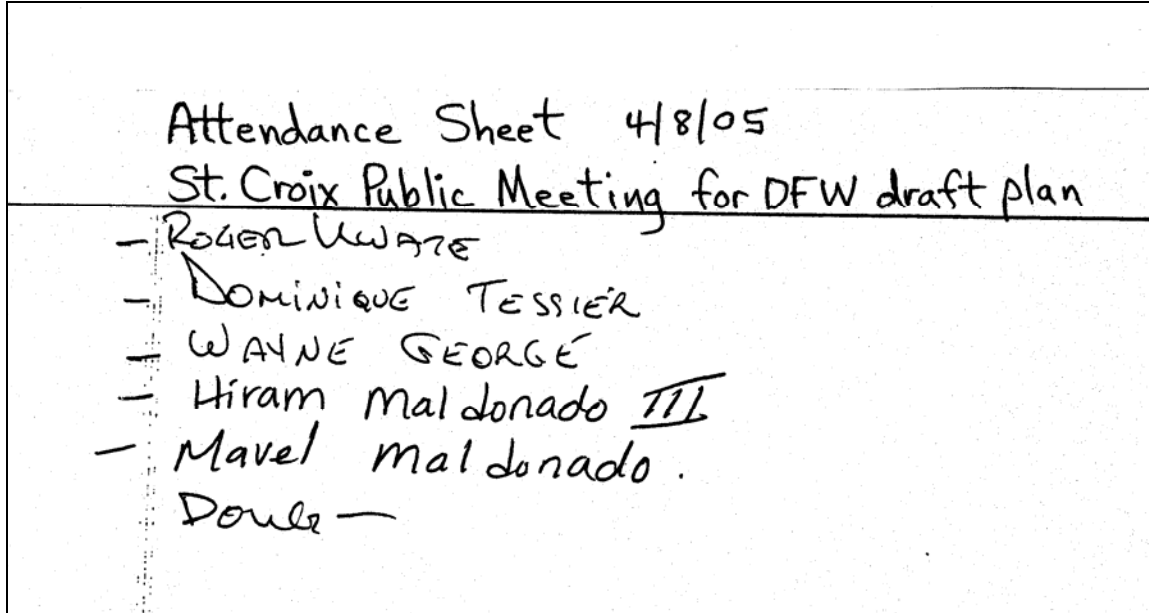 Attendance Sheet 4/8/05
St. Croix Public Meeting for DFW draft plan
- ROGER UWATE
- DOMINIQUE TESSIER
- WAYNE GEORGE
- Hiram Maldonado III
- Mavel Maldonado.